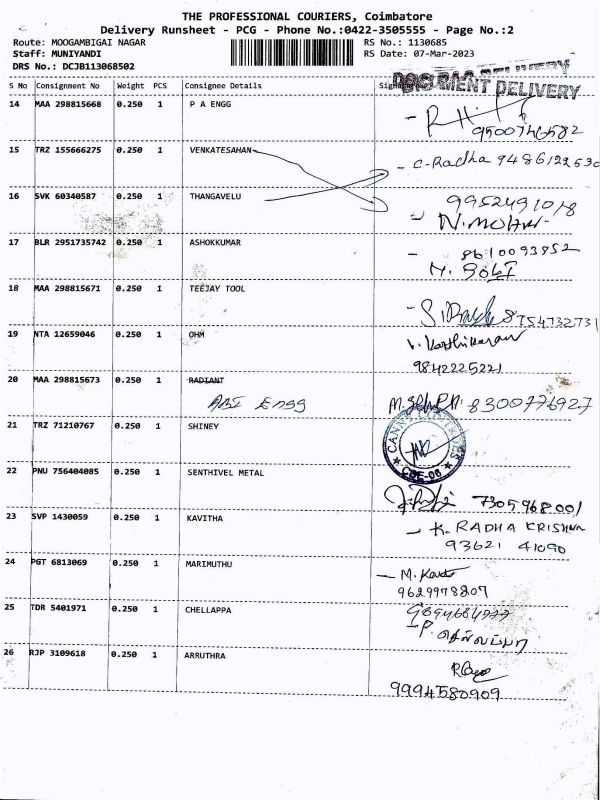 THE PROFESSIONAL COURIERS, Coimbatore
Delivery Runsheet - PCG - Phone No.:0422-3505555 - Page No.:2
Route: MOOGAMBIGAI NAGAR RS No.: 1130685
Staff: MUNIYANDI RS Date: 07-Mar-2023
DRS No.: DCJB113068502
DOCUMENT DELIVERY
S No Consignment No Weight PCS Consignee Details
14 MAA 298815668 0.250 1 P A ENGG
9500746582
15 TRZ 155666275 0.250 1 VENKATESAHAN
- C-Radha 9486122530
16 SVK 60340587 0.250 1 THANGAVELU 9952491018
N.MOHAN
17 BLR 2951735742 0.250 1 ASHOKKUMAR - 8610093852
M. GOBI
18 MAA 298815671 0.250 1 TEEJAY TOOL
8754732731
19 NTA 12659046 0.250 1 OHM
V. Karthikeyan
9842225221
20 MAA 298815673 0.250 1 RADIANT
ABI Engg 8300776927
21 TRZ 71210767 0.250 1 SHINEY
CBE-06
22 PNU 756404085 0.250 1 SENTHIVEL METAL
7305968001
23 SVP 1430059 0.250 1 KAVITHA - K. RADHA KRISHNA
93621 41090
24 PGT 6813069 0.250 1 MARIMUTHU
9629978807
25 TDR 5401971 0.250 1 CHELLAPPA
P. செல்லப்பா
26 RJP 3109618 0.250 1 ARRUTHRA
9994580909